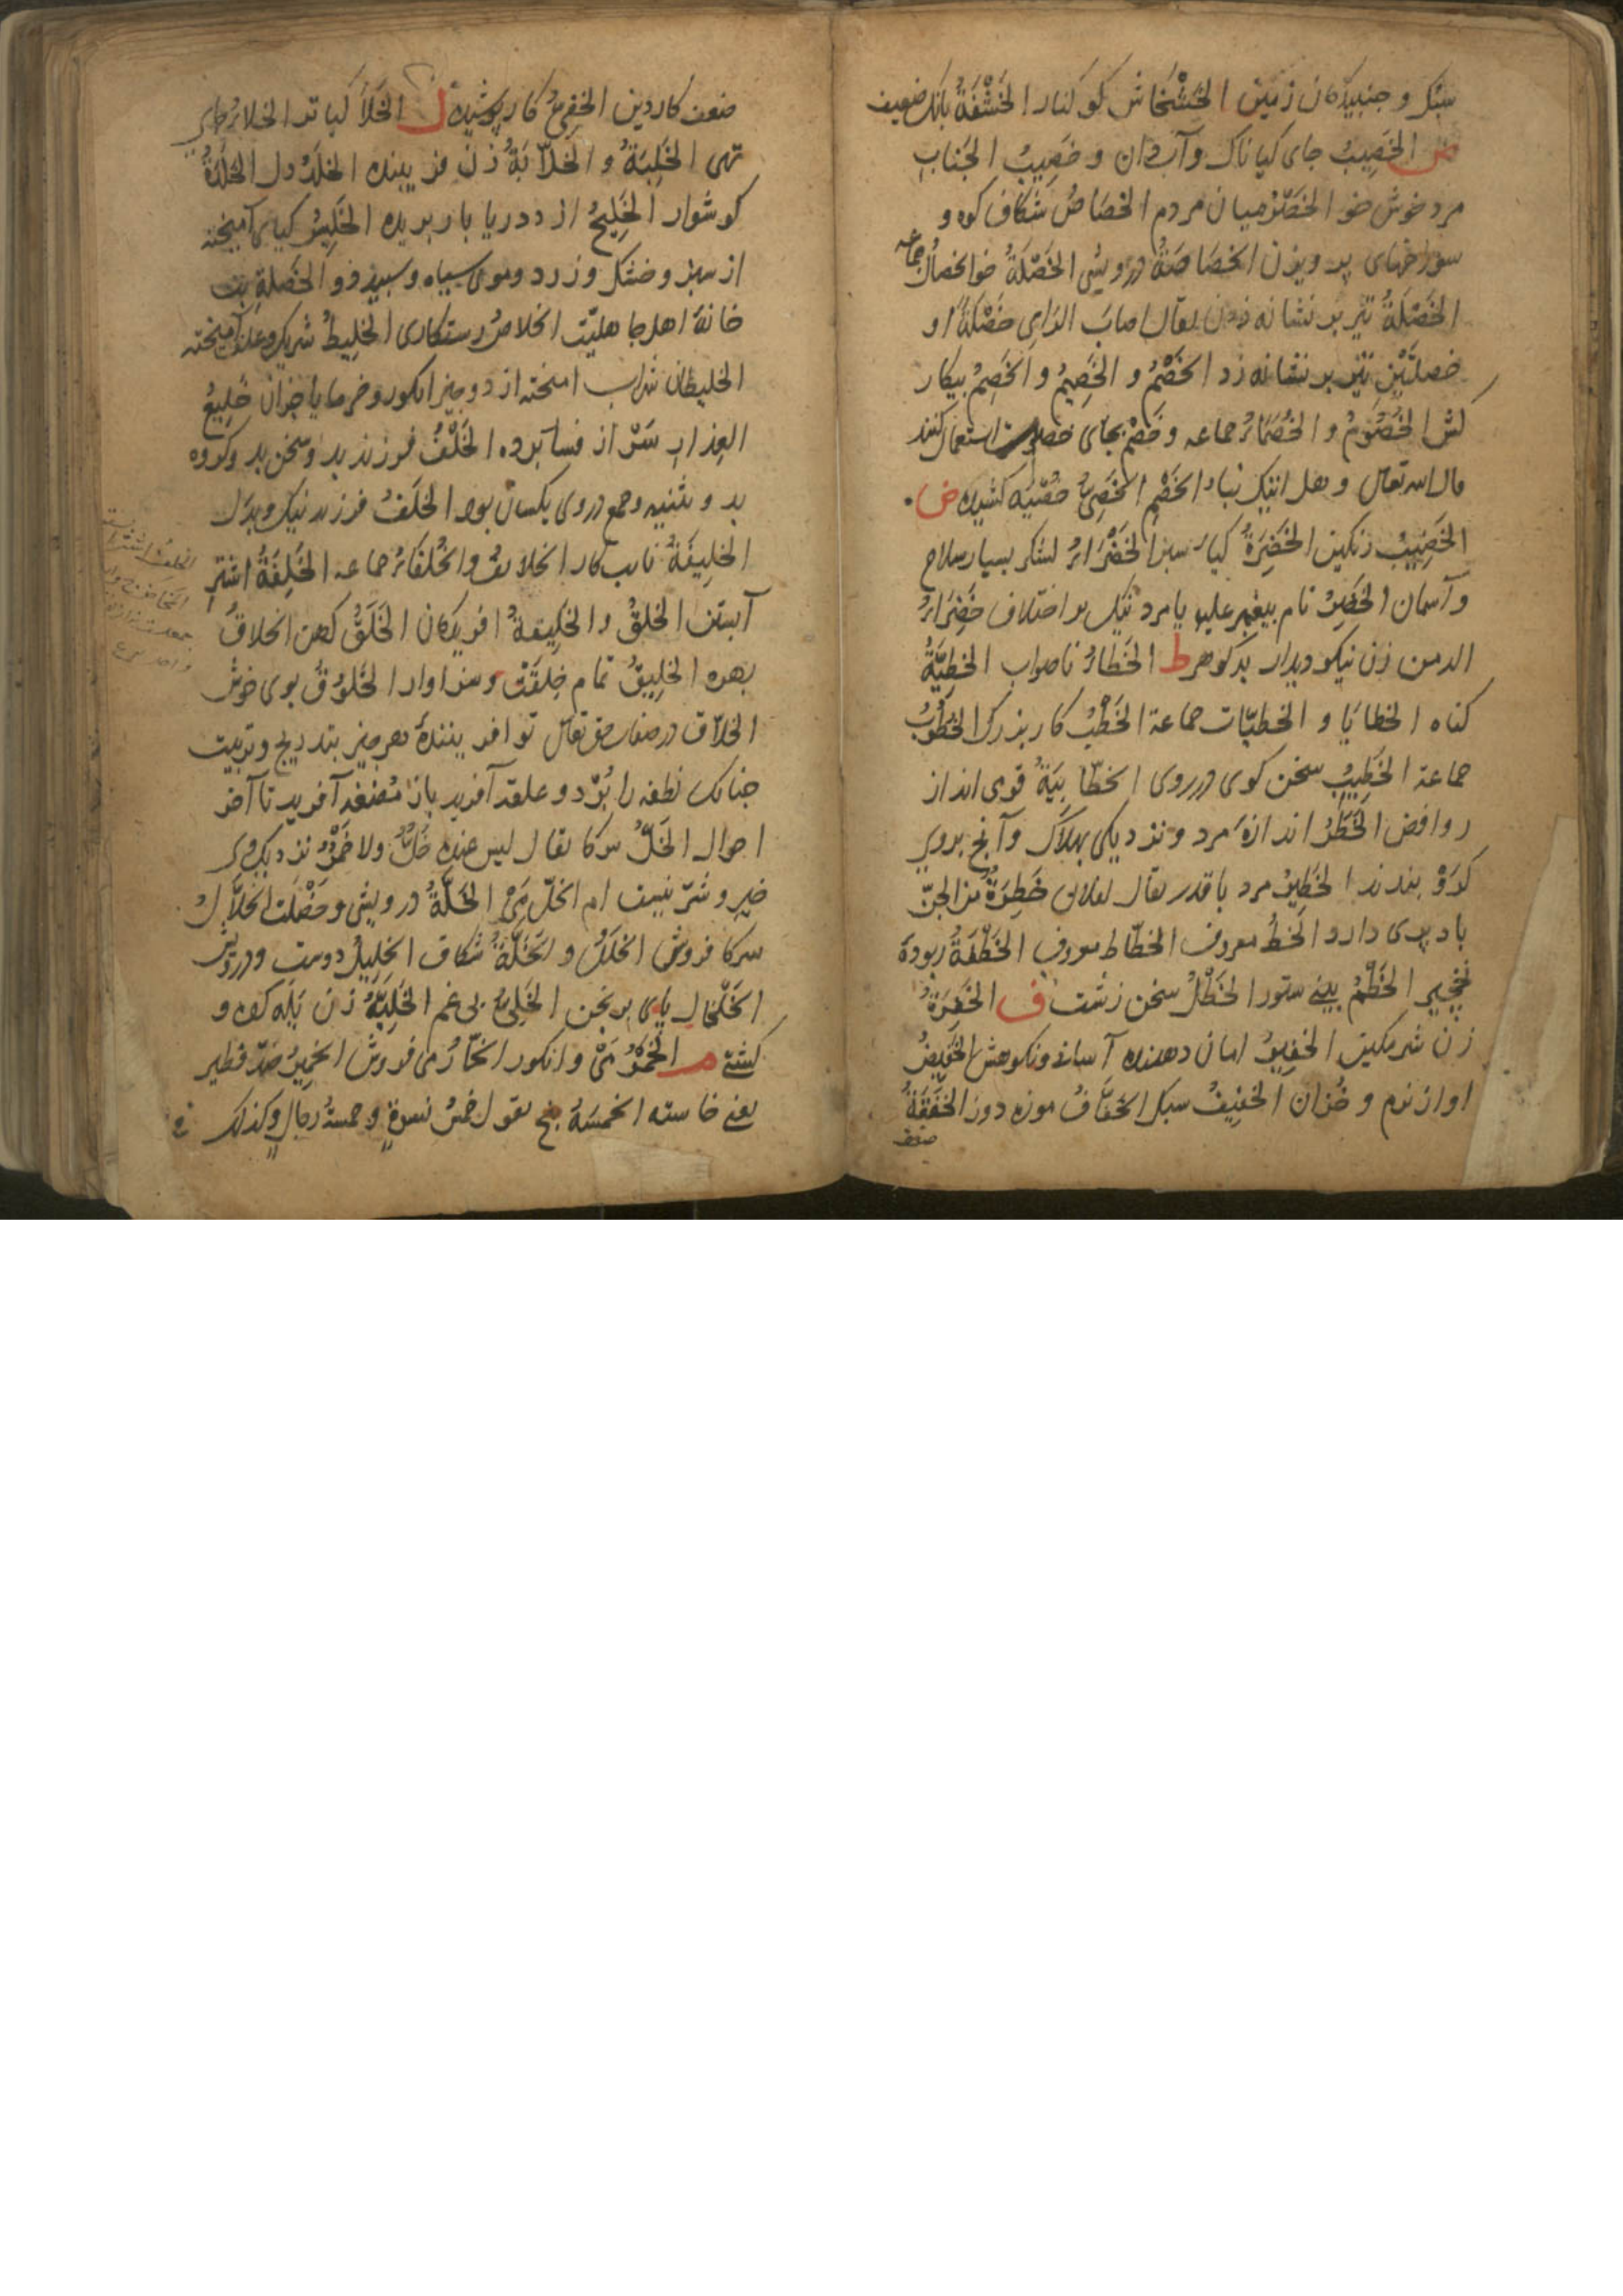 سبک و جنبیدکان زمین الخَشْخَاش کوکنار الخَشْفَةُ بانک ضعیف
ص الخَصِیبُ جای کیاناک وآب‌دان و خَصِیبُ الجَنَابِ
مرد خوش خو الخَصْرُ میان مردم الخَصَاصُ شکاف کوه و
سوراخهای پرویزن الخَصَاصَةُ درویشی الخَصْلَةُ خو الخصالُ جماعه
الخَصْلَةُ تیر بر نشانه زدن یقال اصابَ الرامی خَصْلَةً او
خصلتَیْنِ تیر بر نشانه زد الخَصْمُ و الخَصِیمُ و الخَصِمُ بیکار
کش الخُصُومُ و الخُصَمَاءُ جماعه و خَصْم بجای استعمال کنند
قال الله تعالی و هل اتیک نباء الخَصْمِ الخَصِیُّ خُصْیَه کشیده ض
الخَضِیبُ رنکین الخَضِرَةُ کیاه سبز الخَضْرَاءُ لشکر بسیار سلاح
و آسمان الخَضِرُ نام بیغمبر علیه یا مرد نیک بر اختلاف خَضْرَاءُ
الدمن زن نیکو دیدار بد کوهر ط الخَطَاءُ ناصواب الخطِیَّةُ
کناه الخطایَا و الخطیّات جماعة الخَطْبُ کار بزرک الخُطُوبُ
جماعة الخَطِیبُ سخن کوی در روی الخطّابِیَةُ قومی اند از
روافض الخَطَرُ اندازهٔ مرد و نزدیکی بهلاک و آنچ بروی
کرَوْ بندند الخَطِیرُ مرد با قدر یقال لفلان خَطِرَةٌ من الجنّ
باد پری دارد الخطُ معروف الخطّاط معروف الخَطْفَةُ ربودهٔ
نخچیر الخَطْمُ بینی ستور الخَطْلُ سخن زشت ف الخَفِرَةُ
زن شرمکین الخفِیرُ امان دهنده آسانی و نکوهش الخَفِیضُ
اواز نرم و خُزان الخفِیفُ سبک الخفَّافُ موزه دوز الخَفَقَةُ
ضعف
ضعف کار دین الخفِیُّ کار پوشیده ل الخَلَأ کیا تر الخلاءُ جای
تهی الخَلِبَةُ و الخَلَّابَةُ زن فریبنده الخلَدُ دل الخَلَدَةُ
کوشوار الخَلِیجُ از دریا باز بریده الخَلِیسُ کیاهی آمیخته
از سبز و خشک و زرد و موی سیاه و سبید ذو الخَصلة بت
خانهٔ اهل جاهلیّت الخلاصُ رستکاری الخلِیطُ شریک و علف آمیخته
الخلیطان شراب امیخته از دو چیز انکور و خرما یا جز آن خَلِیعُ
العِذارِ سَر از فسار برده الخَلْفُ فرزند بد و سخن بد و کروه
بد و تثنیه و جمع در وی یکسان بود الخلَفُ فرزند نیک و بدل
الخلِیفَةُ نایب کار الخلایفُ و الخُلفَاءُ جماعه الخَلِفَةُ اشترِ
آبستن الخلقُ و الخلِیقةُ افریدکان الخَلَقُ کهن الخلاقُ
بهره الخلِیقُ تمام خِلقَتْ و سزاوار الخَلوُقُ بوی خوش
الخلّاق در صفات حق تعالی تو افرینندهٔ هر چیز بتدریج و تربیت
جنانک نطفه را بُرد و علقه آفرید باز مُضغه آفرید تا آخر
احوال الخَلُّ سرکا یقال لیس عنده خَلٌّ ولا خَمْرٌ نزدیک وی
خیر و شرّ نیست ام الخلّ مَیْ الخَلَّةُ درویشی و خَصْلت الخلَّالُ
سرکا فروش الخلَلُ و الخَلَّةُ شکاف الخلِیلُ دوست و درویش
الخَلْخَالِ پای برنجن الخَلِیُّ بی غم الخَلِیَّةُ زن یَله کرده و
کشتی م الخَمْرُ مَیْ و انکور الخمّارُ می فروش الخمِیرُ ضدّ فطیر
یعنی خاسته الخمسَةُ پنج یقول خمسُ نسوةٍ و خمسةُ رجالٍ وکذلک